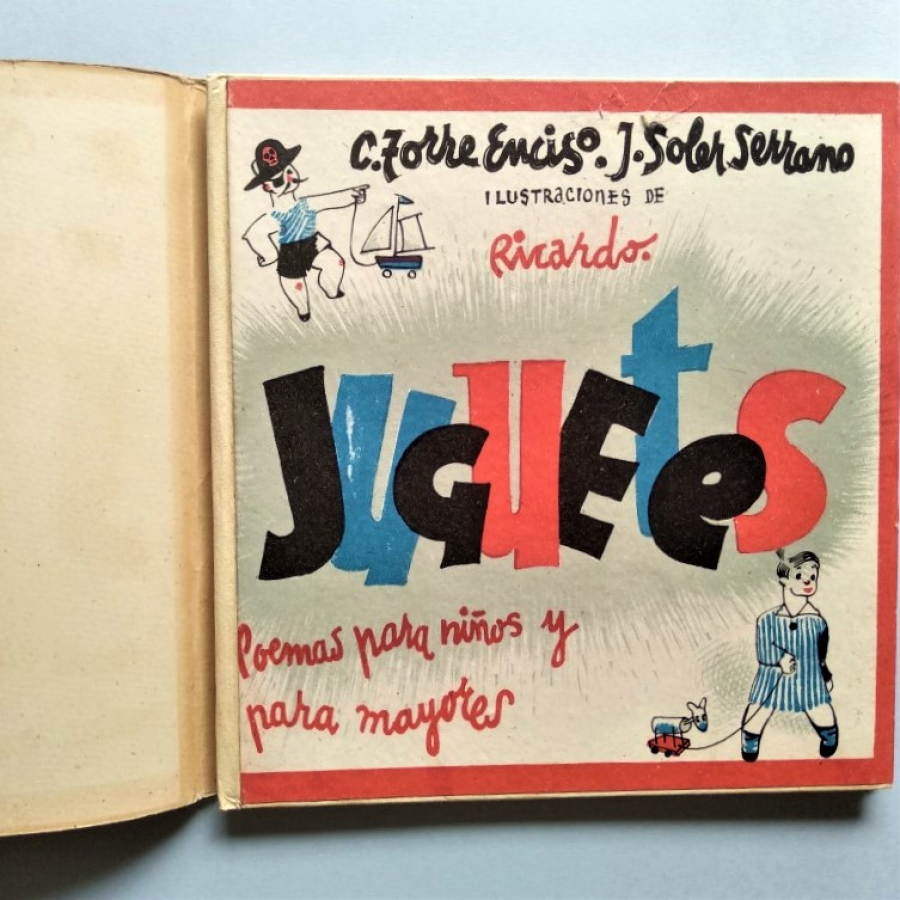 C. Torre Enciso. J. Soler Serrano
ILUSTRACIONES DE
Ricardo.
JuGuEteS
Poemas para niños y
para mayores